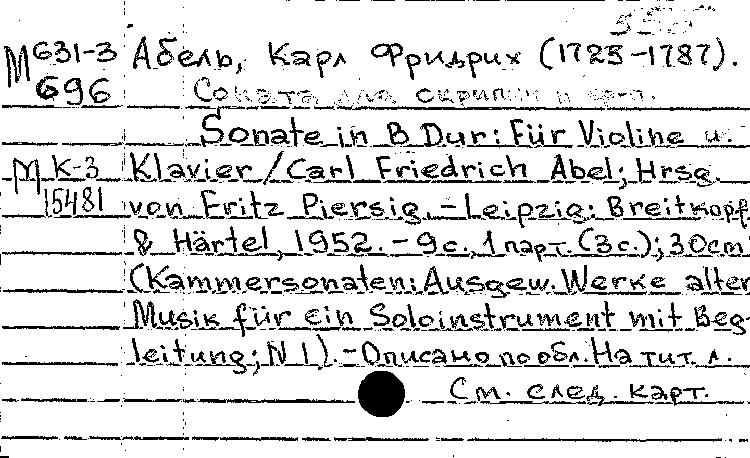 М 631-3 Абель, Карл Фридрих (1725-1787).
696 Соната для скрипки и ф-п.
Sonate in B Dur: Für Violine u.
М К-3 Klavier / Carl Friedrich Abel; Hrsg.
15481 von Fritz Piersig. - Leipzig: Breitkopf
& Härtel, 1952. - 9 с., 1 парт. (3 с.); 30 cm
(Kammersonaten: Ausgew. Werke alter
Musik für ein Soloinstrument mit Beg-
leitung; N 1). - Описано по обл. На тит. л.
См. след. карт.